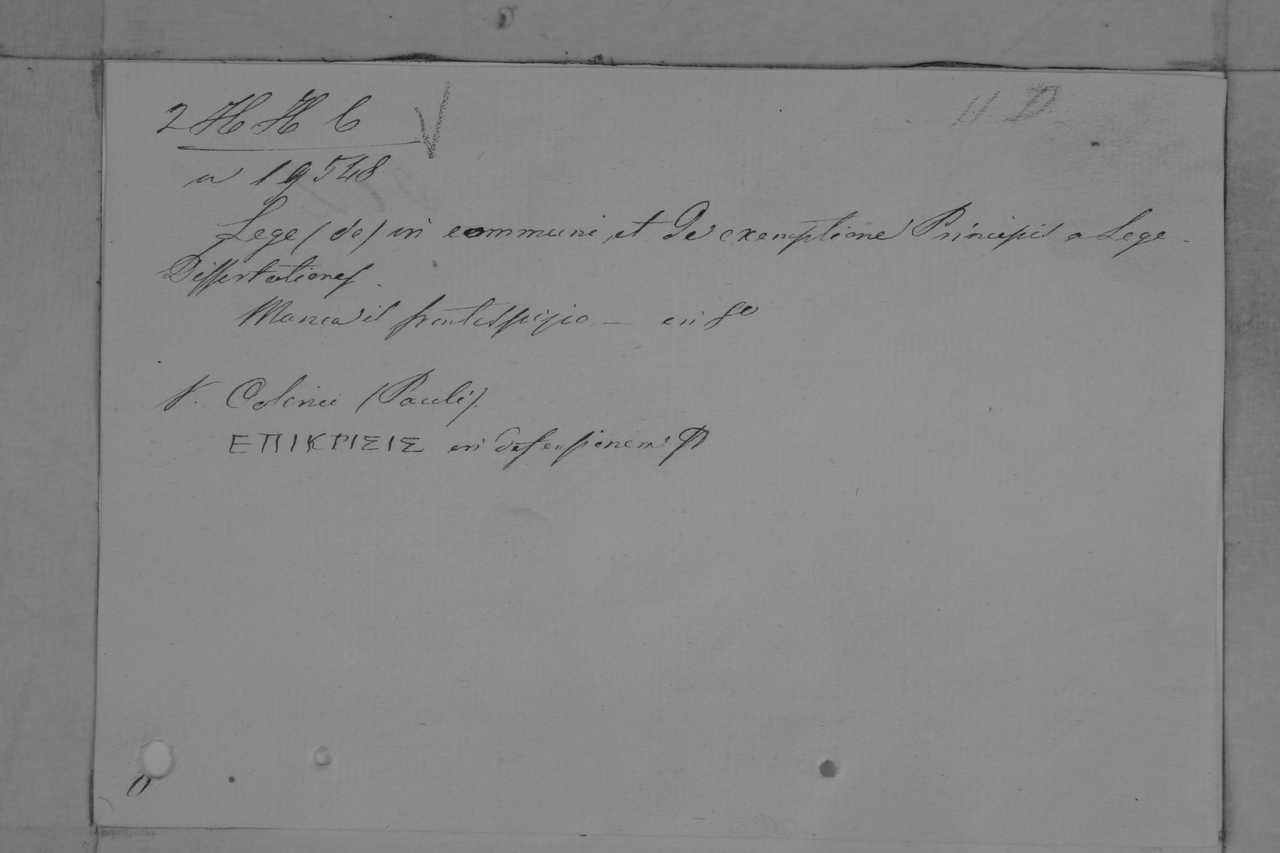 2 H H 6
11 D
a 19548
Lege (de) in communi, et De exemptione Principis a Lege
Dissertationes.
Manca il frontispizio — in 8º
V. Colonii (Pauli)
ΕΠΙΚΡΙΣΙΣ in defensionem